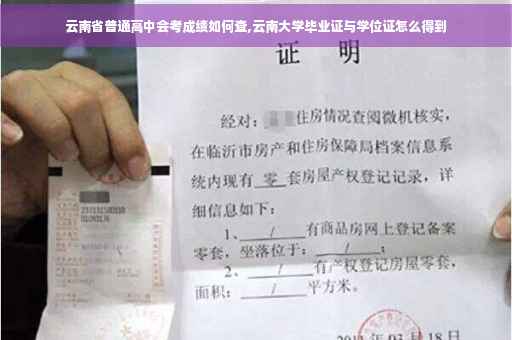 云南省普通高中会考成绩如何查,云南大学毕业证与学位证怎么得到
证 明
经对: 住房情况查阅微机核实,
在临沂市房产和住房保障局档案信息系
统内现有 零 套房屋产权登记记录，详
细信息如下:
1、 / 有商品房网上登记备案
零套，坐落位于: / ;
2、 / 有产权登记房屋零套，
面积: / 平方米。
03月18日